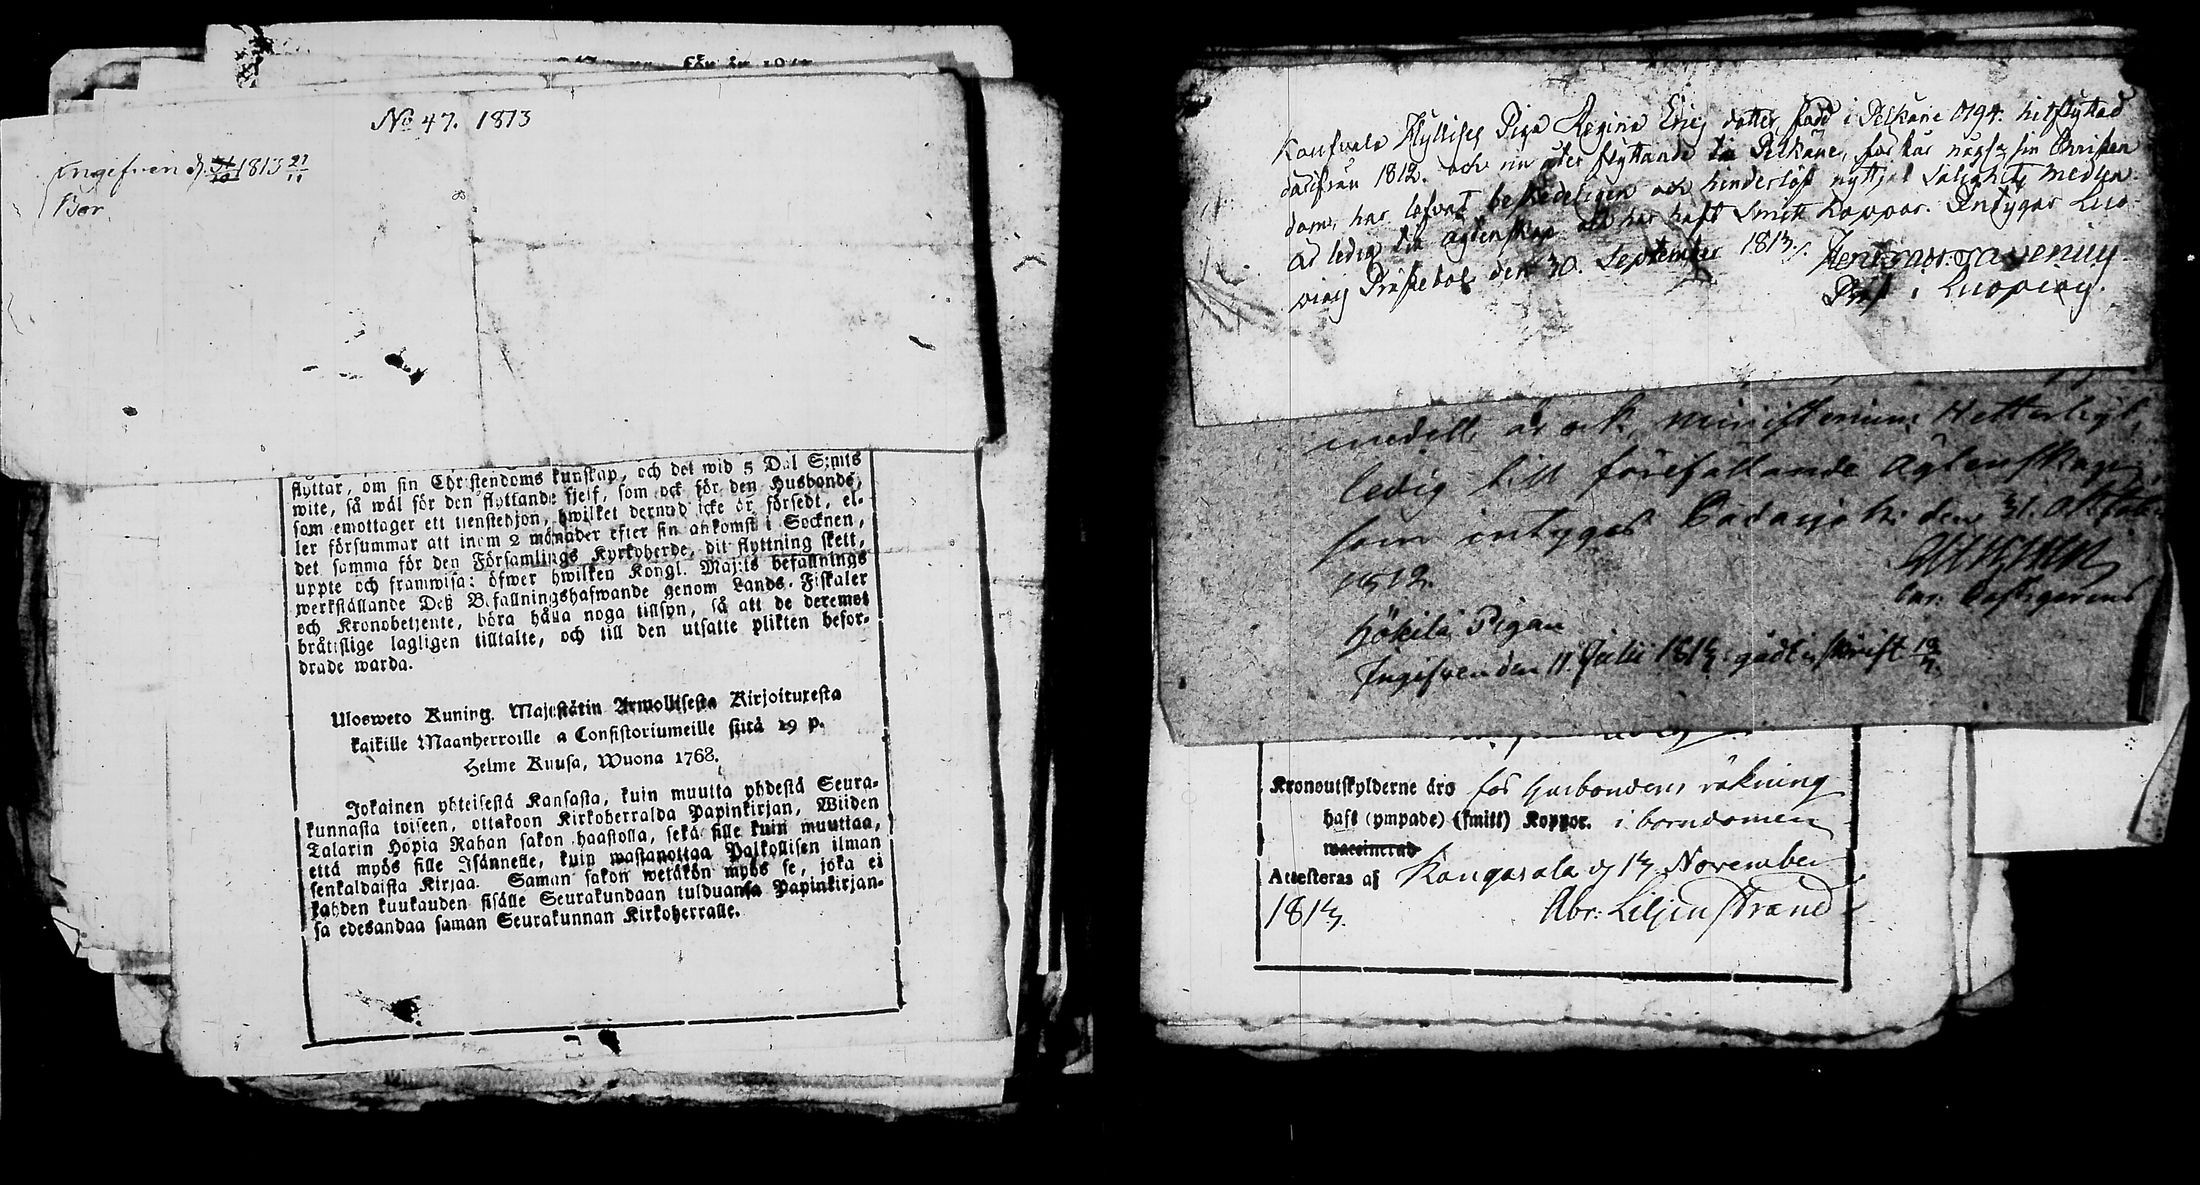 No 47. 1813
Ingifven d. 31/10 1813 21/11
Bor.
flyttar, om sin Christendoms kunskap, och det wid 5 Dal S:mts
wite, så wäl för den flyttande sielf, som ock för den Husbonde,
som emottager ett tienstehjon, hwilket dermed icke är försedt, el-
ler försummar att inom 2 månader efter sin ankomst i Socknen,
det samma för den Församlings Kyrkoherde, dit flyttning skett,
uppte och framwisa: öfwer hwilken Kongl. Maj:ts befallnings
werkställande Deß Befallningshafwande genom Lands-Fiskaler
och Kronobetjente, böra hålla noga tillsyn, så att de deremot
bråtislige lagligen tilltalte, och till den utsatte plikten befor-
drade warda.
Ulosweto Kuning. Majestätin Armollisesta Kirjoituxesta
kaikille Maanherroille a Consistoriumeille siitä 29 p.
Helme Kuusa, Wuona 1768.
Jokainen yhteisestä Kansasta, kuin muutta yhdestä Seura-
kunnasta toiseen, ottakoon Kirkoherralda Papinkirjan, Wiiden
Talarin Hopia Rahan sakon haastolla, sekä sille kuin muuttaa,
että myös sille Isännelle, kuin wastanottaa Palkollisen ilman
senkaldaista Kirjaa. Saman sakon wetäkön myös se, joka ei
kahden kuukauden sisälle Seurakundaan tulduansa Papinkirjan-
sa edesandaa saman Seurakunnan Kirkoherralle.
Pigan Regina Erics dotter född i Pelkäne 1794. hitflyttad
därifrån 1812. och nu åter flyttande till Pelkäne, förstår nöjsz sin Christen
dom, har lefvat beskedeligen och hinderlöst nyttjat Salighets medlen
är ledig till ägtenskap och har haft Smitt Koppor. Intygar Luo-
piois Prästebol den 30. September 1813.
Präst i Luopiois.
medell är ock ministerium Hetterligt,
ledig till förefallande Ägtenskap
som intygas Padasjoki den 31. October
1812.
Hökilä Pigan
Ingifven den 11. Julii 1813. gadt i skrift 18/7.
Kronoutskylderne äro för husbondens räkning
haft (ympade) (smitt) Koppor. i barndomen
Attesteras af Kangasala d 13 November
1813. Abr: Liljenstrand